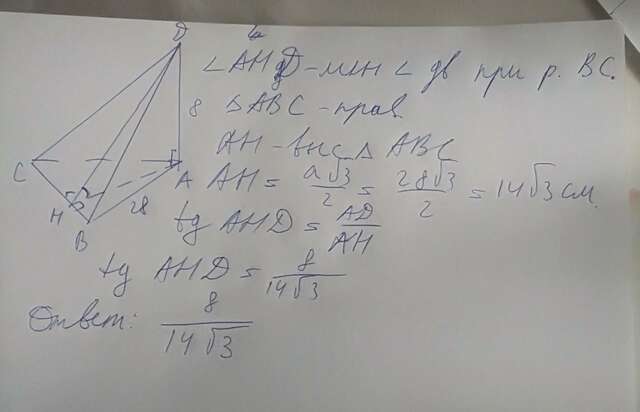 D
∠AHD – лин ∠ дв при р. BC.
8 △ABC – прав
AH – выс △ ABC
C A AH = a√3/2 = 28√3/2 = 14√3 см.
H 28
B
tg AHD = AD/AH
tg AHD = 8/14√3
Ответ: 8/14√3